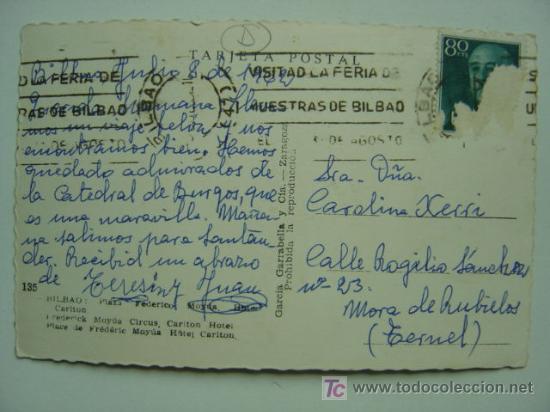 TARJETA POSTAL
D
Bilbao Julio 8 de 1962
VISITAD LA FERIA DE
MUESTRAS DE BILBAO
DE AGOSTO
D LA FERIA DE
AS DE BILBAO
BILBAO
80
CTS
mos un viaje feliz, y nos
encontramos bien. Hemos
quedado admirados de
la Catedral de Burgos, que
es una maravilla. Maña-
na salimos para Santan-
der. Recibid un abrazo
de Teresin y Juan
135
BILBAO: Plaza Federico Moyúa Hotel
Carlton
Frederick Moyúa Circus, Carlton Hotel
Place de Frédéric Moyúa Hôtel Carlton.
García Garrabella y Cía. - Zaragoza
Prohibida la reproducción
Sra. Dña.
Carolina
Calle Rogelio Sánchez
nº 23.
Mora de Rubielos
(Teruel)
www.todocoleccion.net